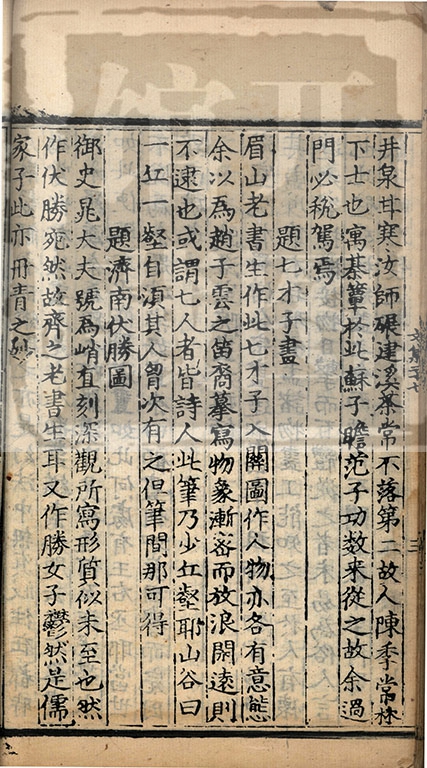 井泉甘寒汝師碾建溪茶常不落第二故人陳季常林
下士也寓棊簟於此蘇子瞻范子功数来從之故余過
門必稅駕焉
題七才子畫
眉山老書生作此七才子入關圖作人物亦各有意態
余以爲趙子雲之苗裔摹寫物象漸密而放浪閑遠則
不逮也或謂七人者皆詩人此筆乃少丘壑耶山谷曰
一丘一壑自須其人胷次有之但筆間那可得
題濟南伏勝圖
御史晁大夫號爲峭直刻深觀所寫形質似未至也然
作伏勝宛然故齊之老書生耳又作勝女子鬱然是儒
家子此亦丹青之妙